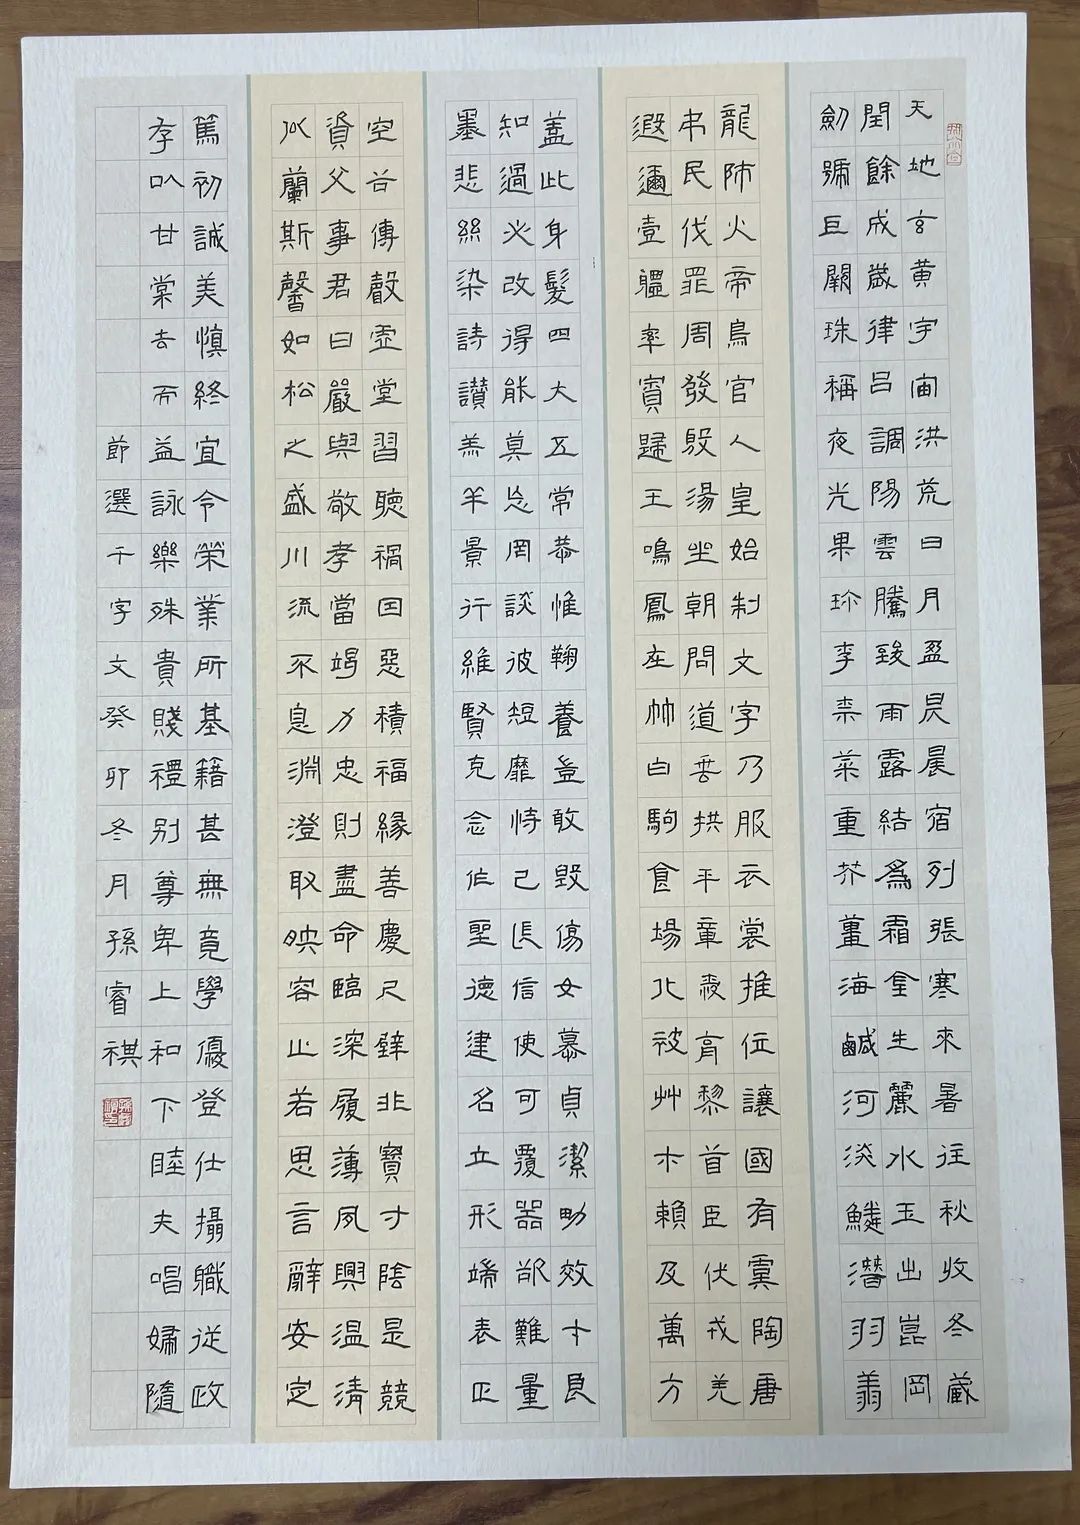 天地玄黄宇宙洪荒日月盈昃晨宿列張寒來暑往秋收冬藏
閏餘成歲律吕調陽雲騰致雨露結爲霜金生麗水玉出崑岡
劍號巨闕珠稱夜光果珍李柰菜重芥薑海鹹河淡鱗潛羽翔
龍師火帝鳥官人皇始制文字乃服衣裳推位讓國有虞陶唐
弔民伐罪周發殷湯坐朝問道垂拱平章愛育黎首臣伏戎羌
遐邇壹軆率賓歸王鳴鳳在竹白駒食場化被艸木賴及萬方
蓋此身髮四大五常恭惟鞠養豈敢毀傷女慕貞潔男效才良
知過必改得能莫忘罔談彼短靡恃己長信使可覆器欲難量
墨悲絲染詩讚羔羊景行維賢克念作聖德建名立形端表正
空谷傳聲虛堂習聽禍因惡積福緣善慶尺璧非寶寸陰是競
資父事君曰嚴與敬孝當竭力忠則盡命臨深履薄夙興温清
似蘭斯馨如松之盛川流不息淵澄取映容止若思言辭安定
篤初誠美慎終宜令榮業所基籍甚無竟學優登仕攝職從政
存以甘棠去而益詠樂殊貴賤禮别尊卑上和下睦夫唱婦隨
節選千字文癸卯冬月孫睿祺